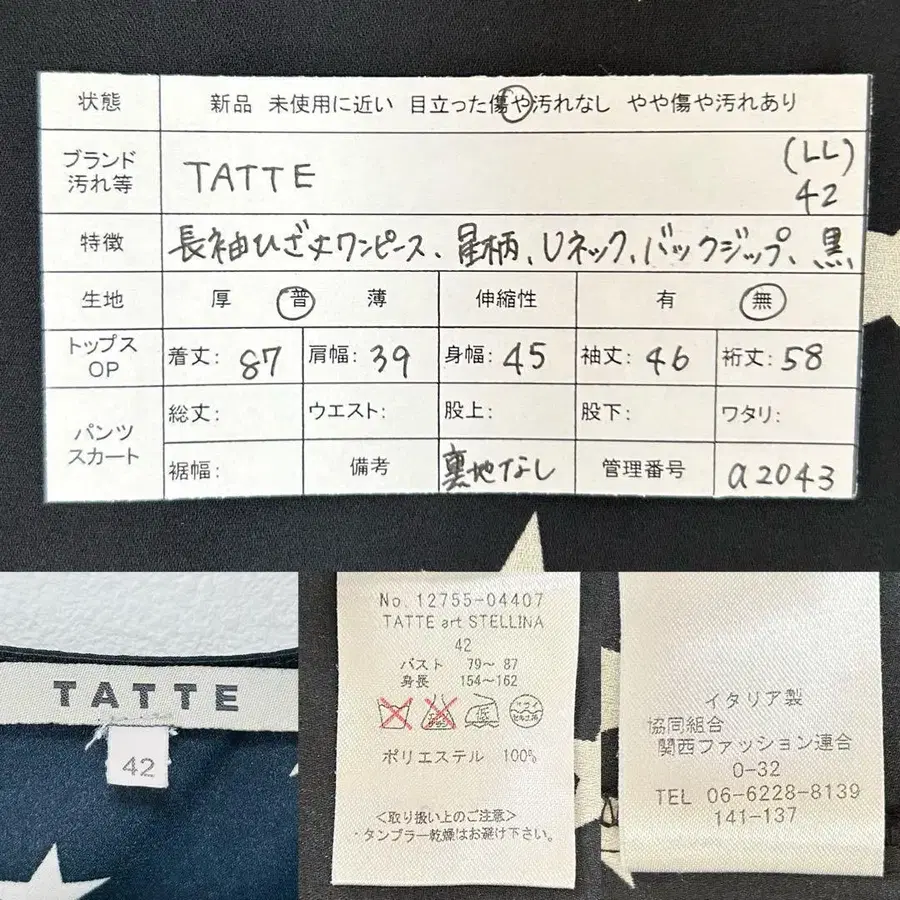 状態 新品 未使用に近い 目立った傷や汚れなし やや傷や汚れあり
ブランド
汚れ等 TATTE (LL)
42
特徴 長袖ひざ丈ワンピース、星柄、Uネック、バックジップ、黒
生地 厚 普 薄 伸縮性 有 無
トップス
OP 着丈: 87 肩幅: 39 身幅: 45 袖丈: 46 裄丈: 58
パンツ
スカート 総丈: ウエスト: 股上: 股下: ワタリ:
裾幅: 備考 裏地なし 管理番号 a2043
TATTE
42
No. 12755-04407
TATTE art STELLINA
42
バスト 79~ 87
身長 154~162
低
ポリエステル 100%
<取り扱い上のご注意>
・タンブラー乾燥はお避け下さい。
イタリア製
協同組合
関西ファッション連合
O-32
TEL 06-6228-8139
141-137